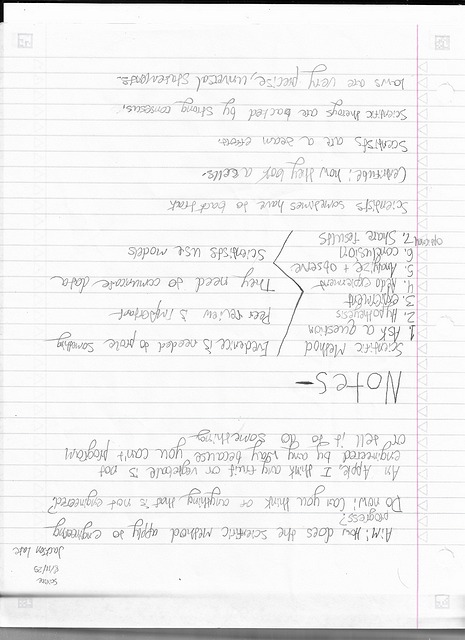 Science
Jackson
Aim: How does the scientific method apply to engineering
progress?
Do now: Can you think of anything that is not engineered?
An Apple, I think any fruit or vegetable is not
engineered by any way because you can't program
or tell it to do something
NOTES-
Scientific Method
1. Ask a question
2. Hypothesis
3. experiment
4. Redo experiment
5. Analyze + observe
6. conclusion
optional 7. Share results
Evidence is needed to prove something
Peer review is important
They need to comunicate data
Scientists use models
Scientists sometimes have to backtrack
Centribute: how they look a cells.
Scientists are a team effort.
Scientific theorys are backed by strong consensus.
laws are very precise, universal statements.